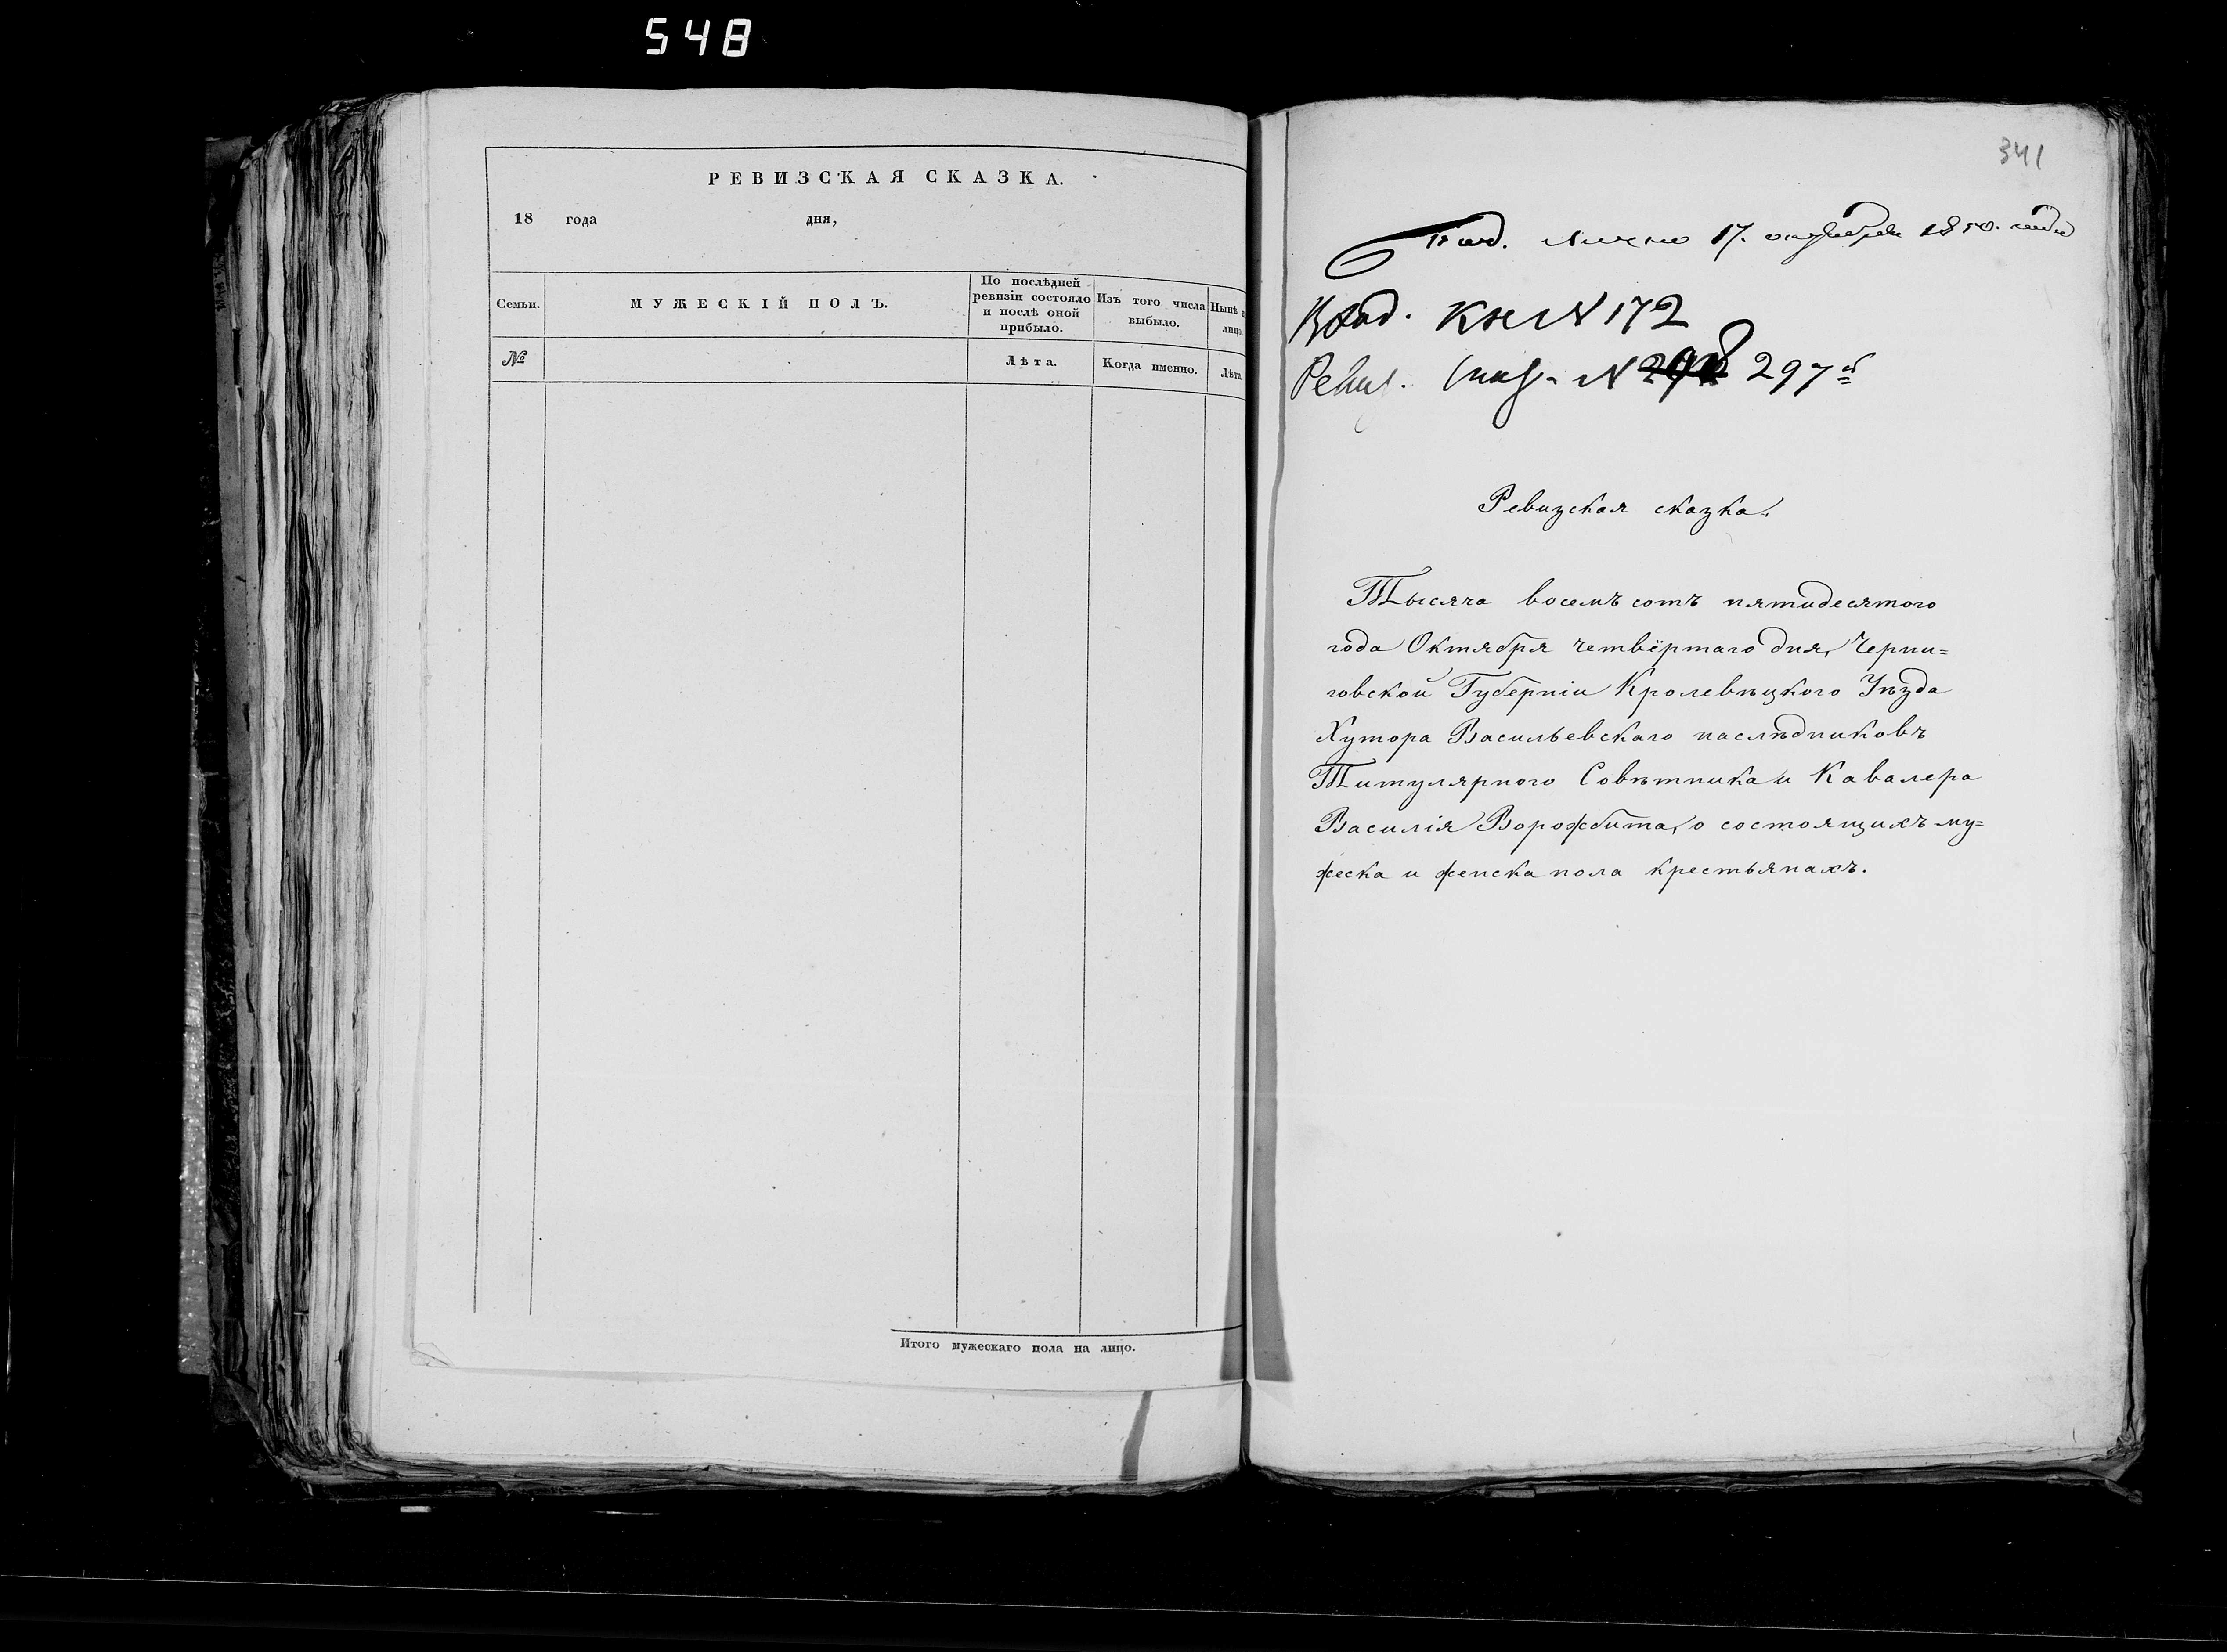 548
РЕВИЗСКАЯ СКАЗКА.
18 года дня,
Семьи.
МУЖЕСКІЙ ПОЛЪ.
По послѣдней
ревизіи состояло
и послѣ оной
прибыло.
Изъ того числа
выбыло.
Нынѣ
лицо
№
Лѣта.
Когда именно.
Лѣта.
Итого мужескаго пола на лицо.
341
Под. лично 17. октября 1850. года
Вход. Кн № 172
Ревиз. Сказ. № 297й
Ревизская сказка.
Тысяча восемъ сотъ пятидесятого
года Октября четвёртаго дня, Черни=
говской Губерніи Кролевѣцкого Уѣзда
Хутора Васильевскаго наслѣдниковъ
Титулярного Совѣтника и Кавалера
Василія Ворожбита, о состоящихъ му=
жеска и женска пола крестьянахъ.